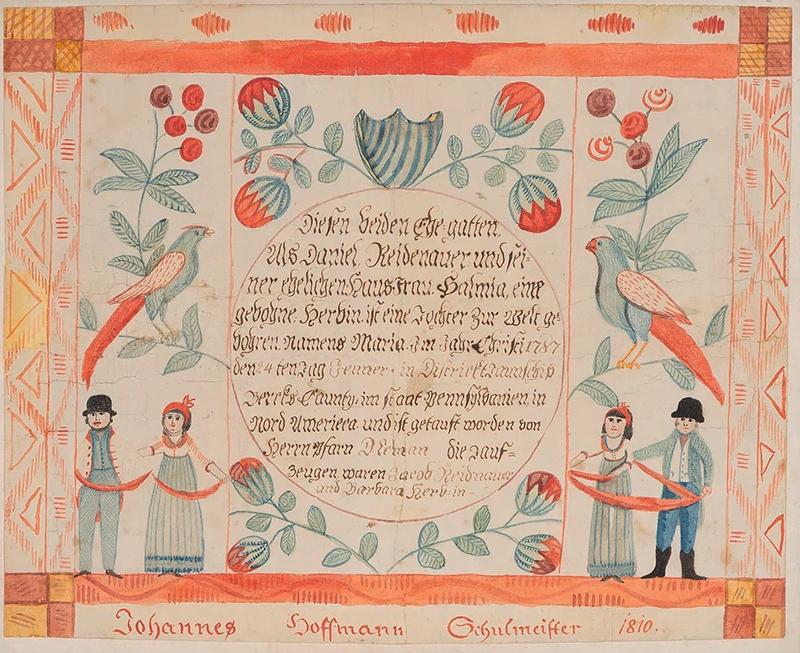 Diesen beiden Ehe-gatten,
Als Daniel Reidenauer und sei-
ner ehelichen Hausfrau. Salmia, eine
gebohne Herbin ist eine Tochter zur Welt ge
bohren namens Maria Im Jahr Christi 1787
den 24ten Tag Jenner - in District Taunschip
Bercks-Caunty im staat Pennsylvanien in
Nord Amerieca und ist getauft worden von
Herrn Pfarn Dleman die Tauf-
Zeugen, waren Jacob Reidnauer
und Barbara Herbin
Johannes Hoffmann Schulmeister 1810.